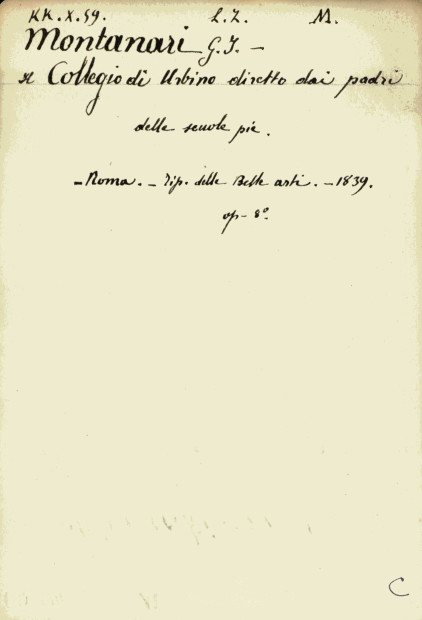 KK.X.59. L.Z. M.
Montanari G.I. —
Il Collegio di Urbino diretto dai padri
delle scuole pie.
— Roma. — Tip. delle Belle arti. — 1839.
op - 8°.
C